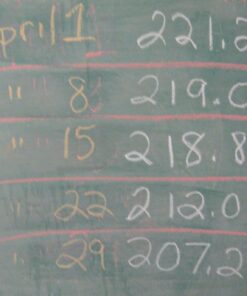 pril 1 221.2
" 8 219.0
" 15 218.8
" 22 212.0
" 29 207.2